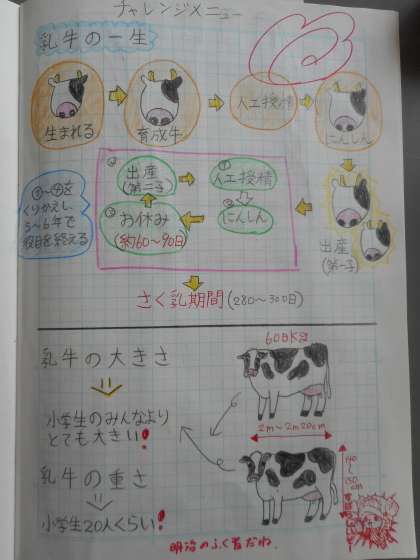 チャレンジメニュー
乳牛の一生
生まれる
育成牛
人工授精
にんしん
出産
(第一子)
① 人工授精
② にんしん
③ お休み
(約60〜90日)
④ 出産
(第二子)
①〜④を
くりかえし
5〜6年で
役目を終える
さく乳期間(280〜300日)
乳牛の大きさ
小学生のみんなより
とても大きい!
乳牛の重さ
小学生20人くらい!
600kg
2m〜2m20cm
140
〜
150
cm
明治のふく習だね